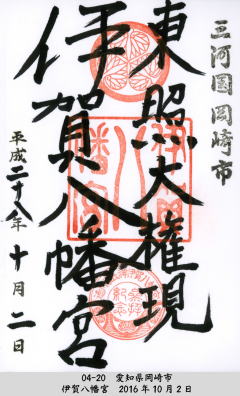 三河国岡崎市
東照大権現
伊賀八幡宮
平成二十八年十月二日
04-20 愛知県岡崎市
伊賀八幡宮 2016年10月2日